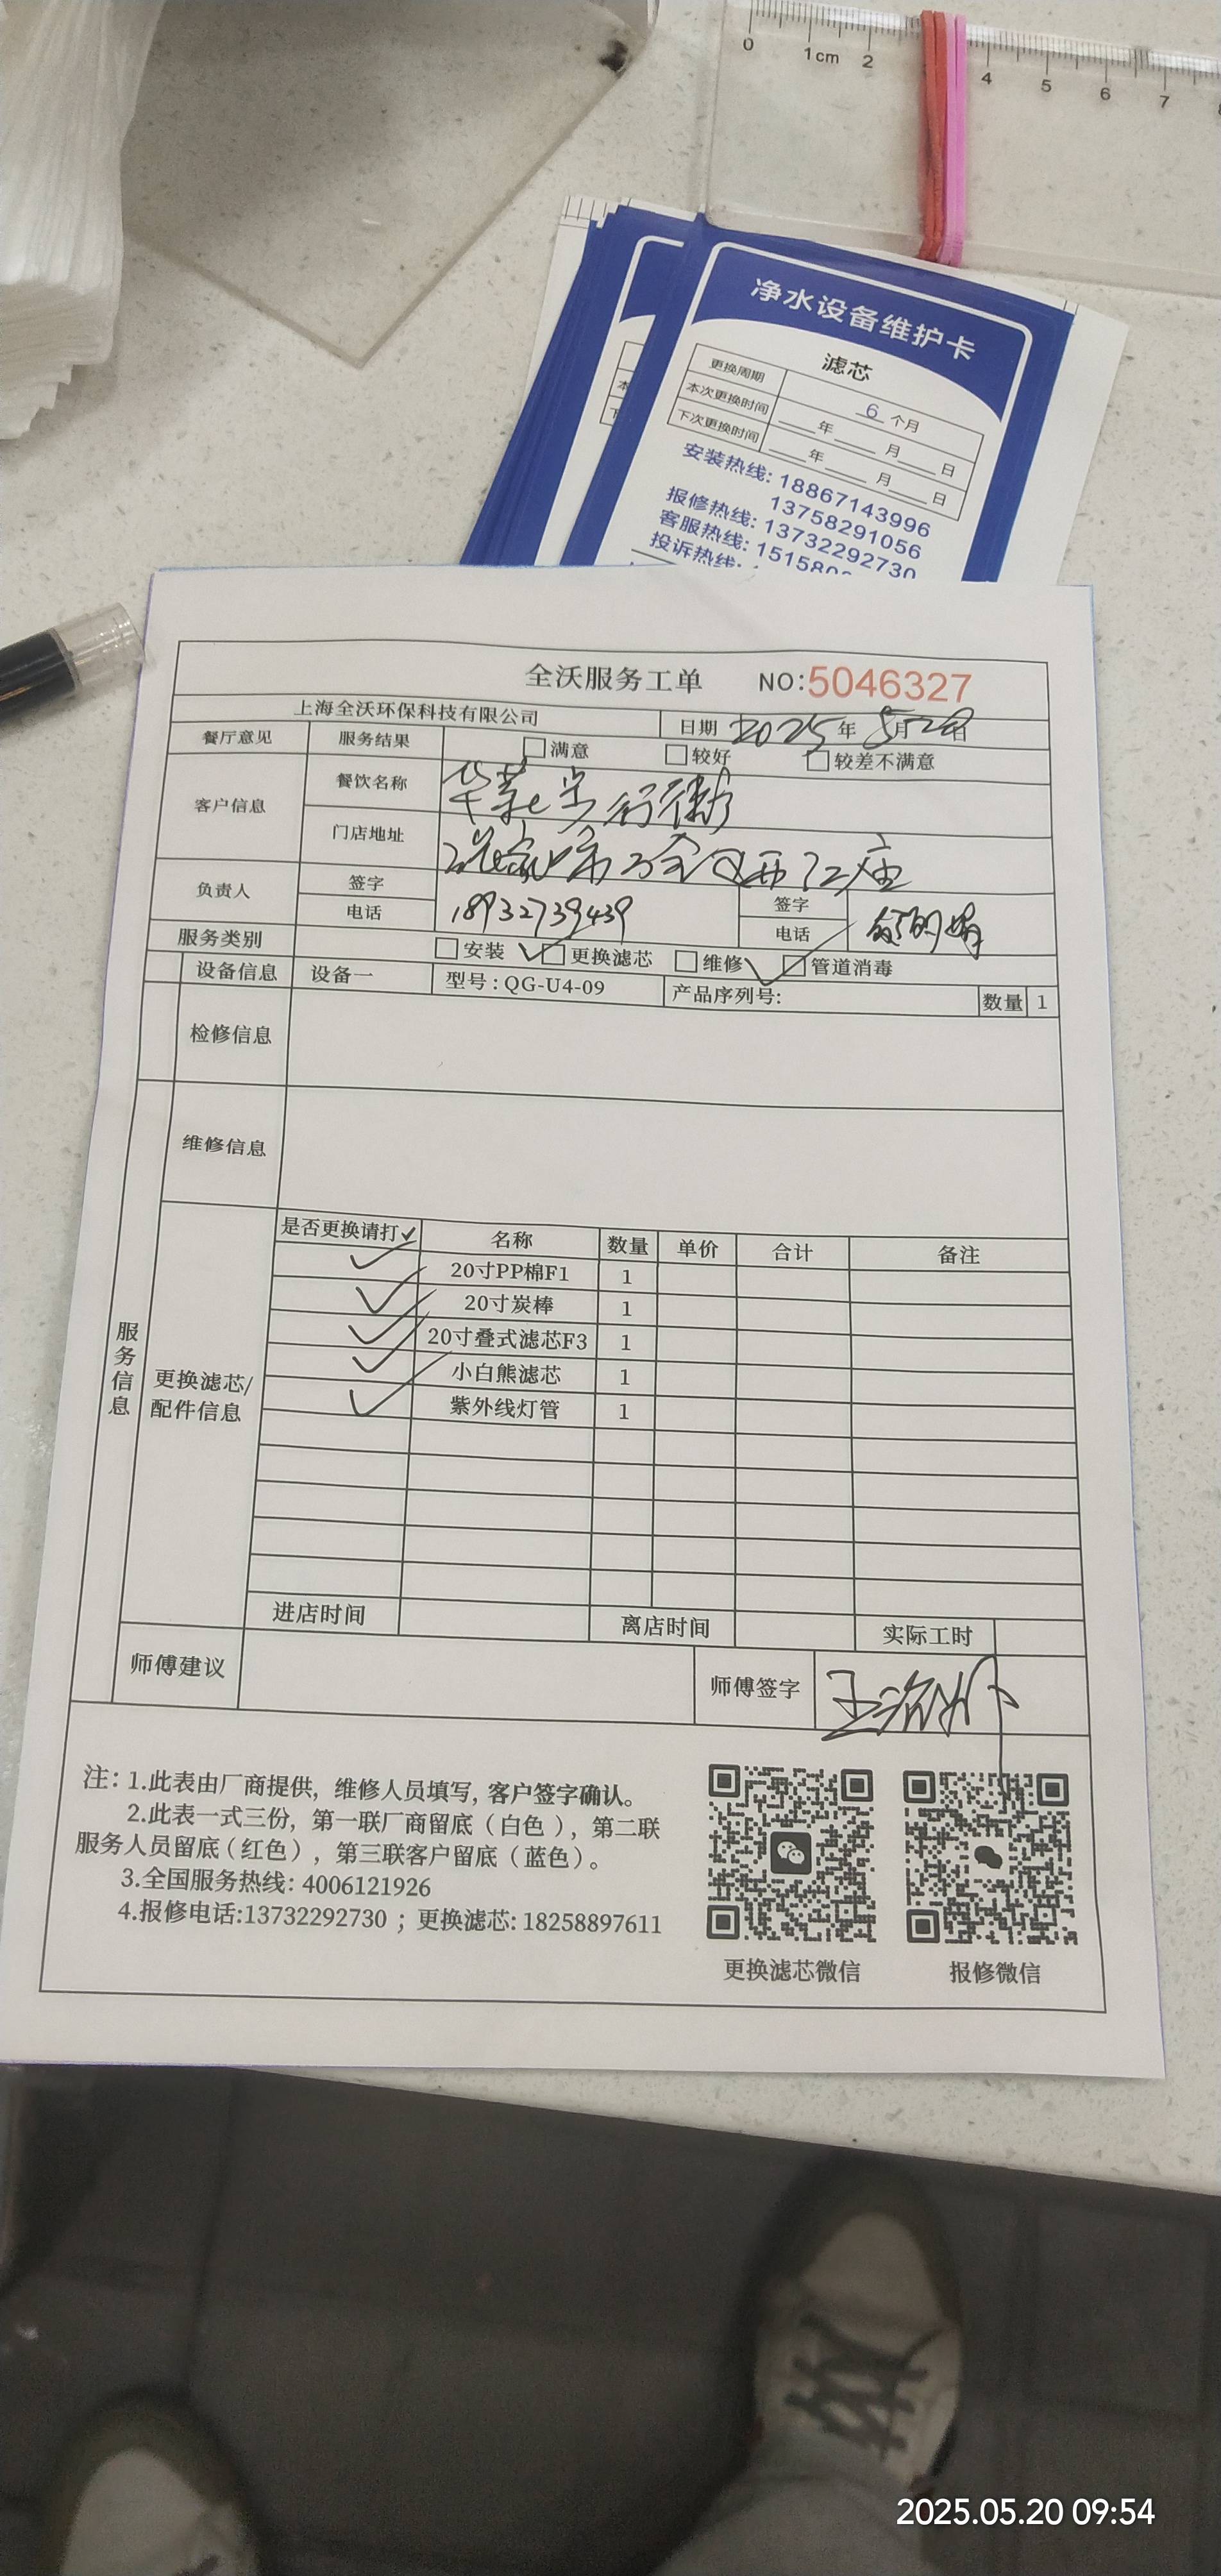 0 1cm 2 4 5 6 7
净水设备维护卡
滤芯
更换周期 6 个月
本次更换时间 年 月 日
下次更换时间 年 月 日
安装热线: 18867143996
13758291056
报修热线: 13732292730
客服热线: 151580
投诉热线:
全沃服务工单 NO:5046327
上海全沃环保科技有限公司 日期 2025年 5月20日
餐厅意见 服务结果 满意 较好 较差不满意
客户信息 餐饮名称 华莱士 步行街
门店地址
负责人 签字 签字
电话 18932739439 电话
服务类别 安装 更换滤芯 维修 管道消毒
设备信息 设备一 型号:QG-U4-09 产品序列号: 数量 1
检修信息
维修信息
服务信息
更换滤芯/
配件信息
是否更换请打✓ 名称 数量 单价 合计 备注
✓ 20寸PP棉F1 1
✓ 20寸炭棒 1
✓ 20寸叠式滤芯F3 1
✓ 小白熊滤芯 1
✓ 紫外线灯管 1
进店时间 离店时间 实际工时
师傅建议 师傅签字 王
注: 1.此表由厂商提供, 维修人员填写, 客户签字确认。
2.此表一式三份, 第一联厂商留底(白色), 第二联
服务人员留底(红色), 第三联客户留底(蓝色)。
3.全国服务热线: 4006121926
4.报修电话:13732292730 ; 更换滤芯: 18258897611
更换滤芯微信 报修微信
2025.05.20 09:54